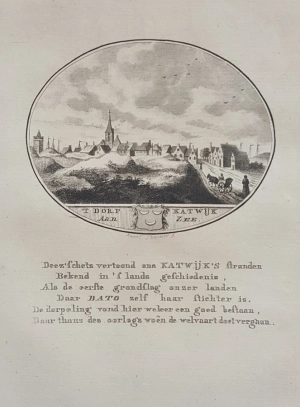 'T DORP KATWIJK
AAN ZEE.
Deez' schets vertoond ons KATWIJK'S stranden
Bekend in 's lands geschiedenis,
Als de eerste grondslag onzer landen
Daar BATO zelf haar stichter is.
De dorpeling vond hier weleer een goed bestaan,
Daar thans des oorlogs woên de welvaart doet vergaan.